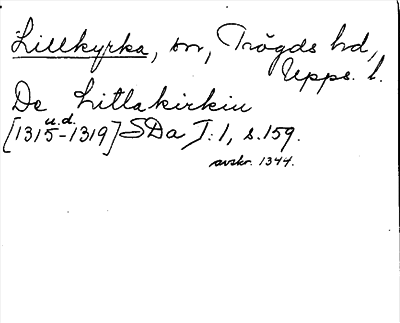 Lillkyrka, sn, Trögds hd,
Upps. l.
De Litlakirkiu
u.d.
[1315-1319] SDa I:1, s.159.
avskr. 1344.